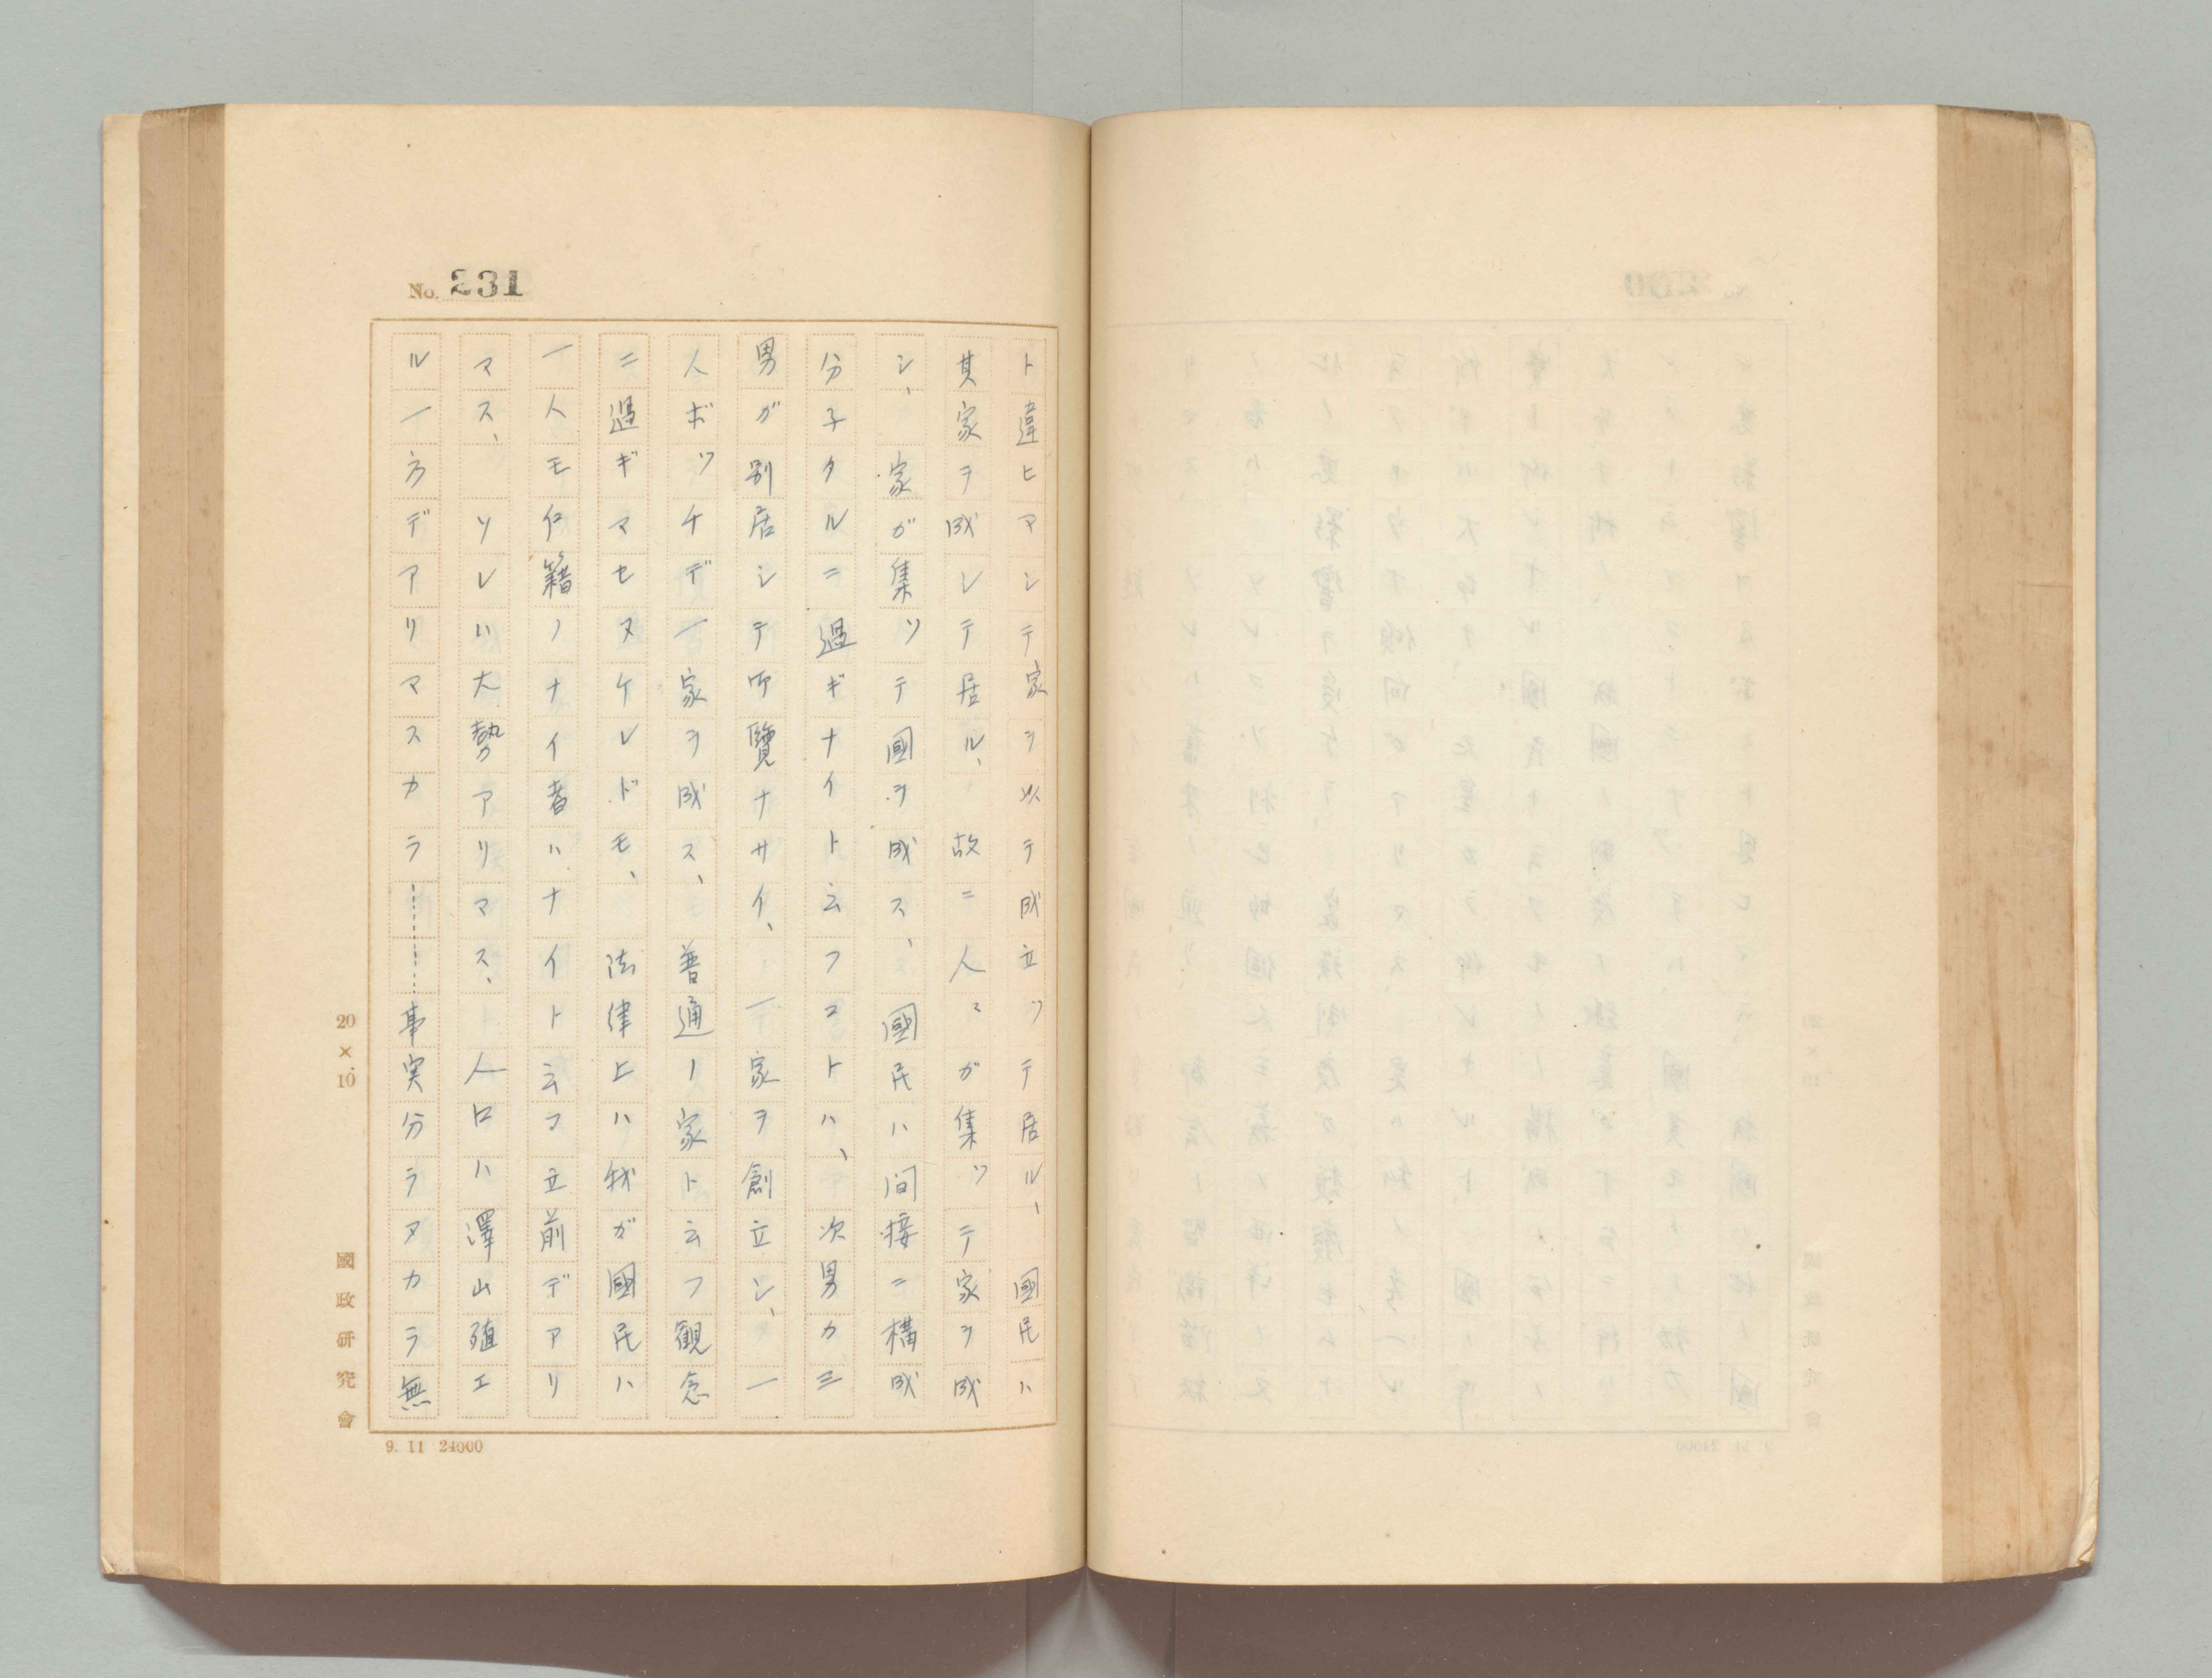 No. 231
ト違ヒマシテ家ヲ以テ成立ツテ居ル、國民ハ
其家ヲ成シテ居ル、故ニ人々ガ集ツテ家ヲ成
シ、家ガ集ツテ國ヲ成ス、國民ハ間接ニ構成
分子タルニ過ギナイト云フコトハ、次男カ三
男ガ別居シテ御覽ナサイ、一家ヲ創立シ、一
人ボツチデ一家ヲ成ス、普通ノ家ト云フ観念
ニ過ギマセヌケレドモ、法律上ハ我ガ國民ハ
一人モ戸籍ノナイ者ハナイト云フ立前デアリ
マス、ソレハ大勢アリマス、人口ハ澤山殖エ
ル一方デアリマスカラ………事実分ラヌカラ無
20×10
國政研究會
9. 11 24000